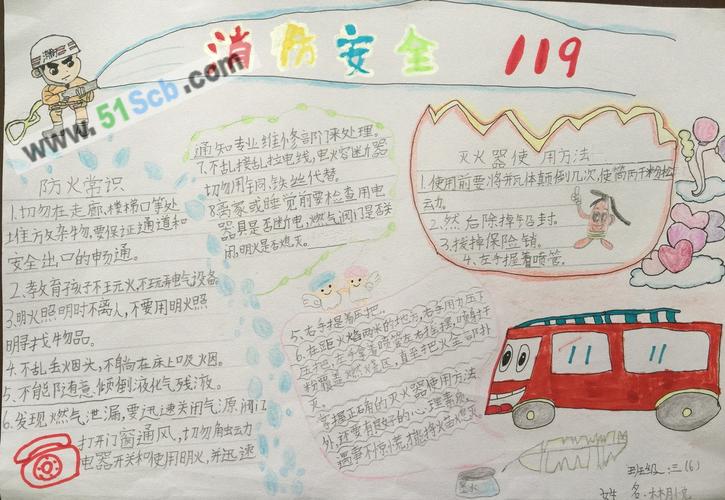 消防安全 119
www.51Scb.com
防火常识
1.切勿在走廊、楼梯口等处
堆放杂物,要保证通道和
安全出口的畅通。
2.教育孩子不玩火,不玩弄电气设备
3.明火照明时不离人,不要用明火照
明寻找物品。
4.不乱丢烟头,不躺在床上吸烟。
5.不能随意倾倒液化气残液。
6.发现燃气泄漏,要迅速关闭气源阀门
打开门窗通风,切勿触动
电器开关和使用明火,并迅速
通知专业维修部门来处理。
7.不乱接乱拉电线,电火容断器
切勿用车同、铁丝代替。
8.离家或睡觉前要检查用电
器具是否断电,燃气阀门是否关
闭,明火是否熄灭。
灭火器使用方法
1.使用前要将并瓦体颠倒几次,使筒内干粉松
云力。
2.然后除掉铅封。
3.拔掉保险销。
4.左手握着喷管。
5.右手提着压把。
6.在距火焰两米的地方,右手用力压下
压把,左手拿着喷管左右摇摆,喷射干
粉覆盖燃烧区,直至把火全部扑
灭。
掌握正确的灭火器使用方法
外,还要有良好的心理素质,
遇事不惊慌,才能将火患熄灭
班级:三(6)
姓名:林